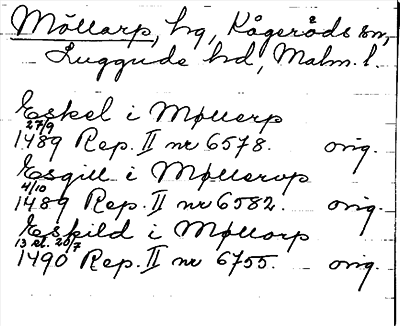 Möllarp, hg, Kågeröds sn,
Luggude hd, Malm. l.
Eskel i Møllerp
27/9
1489 Rep. II nr 6578. orig.
Esgill i Møllerup
4/10
1489 Rep. II nr 6582. orig.
Eskild i Møllorp
13 el. 20/7
1490 Rep. II nr 6755. orig.